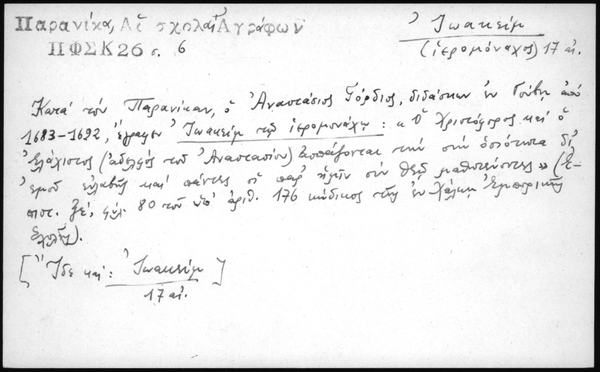 Παρανίκα, Αἱ σχολαὶ Ἀγράφων
ΠΦΣΚ 26 σ. 6
Ἰωακείμ
(ἱερομόναχος) 17 αἰ.
Κατά τόν Παρανίκαν, ὁ Ἀναστάσιος Γόρδιος, διδάσκων ἐν Γούβῃ ἀπό
1683-1692, ἔγραψεν Ἰωακείμ τῷ ἱερομονάχῳ: « Ὁ Χριστόφορος καί ὁ
ἐλάχιστος (ἀδελφός τοῦ Ἀναστασίου) ἀσπάζονται τήν σήν ὁσιότητα δι'
ἐμοῦ εὐλαβῶς καί πάντες οἱ παρ' ἡμῖν σύν θεῷ μαθητεύοντες» (Ἐ-
πιστ. ξε', φύλ. 80 τοῦ ὑπ' ἀριθ. 176 κώδικος τῆς ἐν Χάλκῃ Ἐμπορικῆς
Σχολῆς).
[Ἴδε καί: Ἰωακείμ]
17 αἰ.